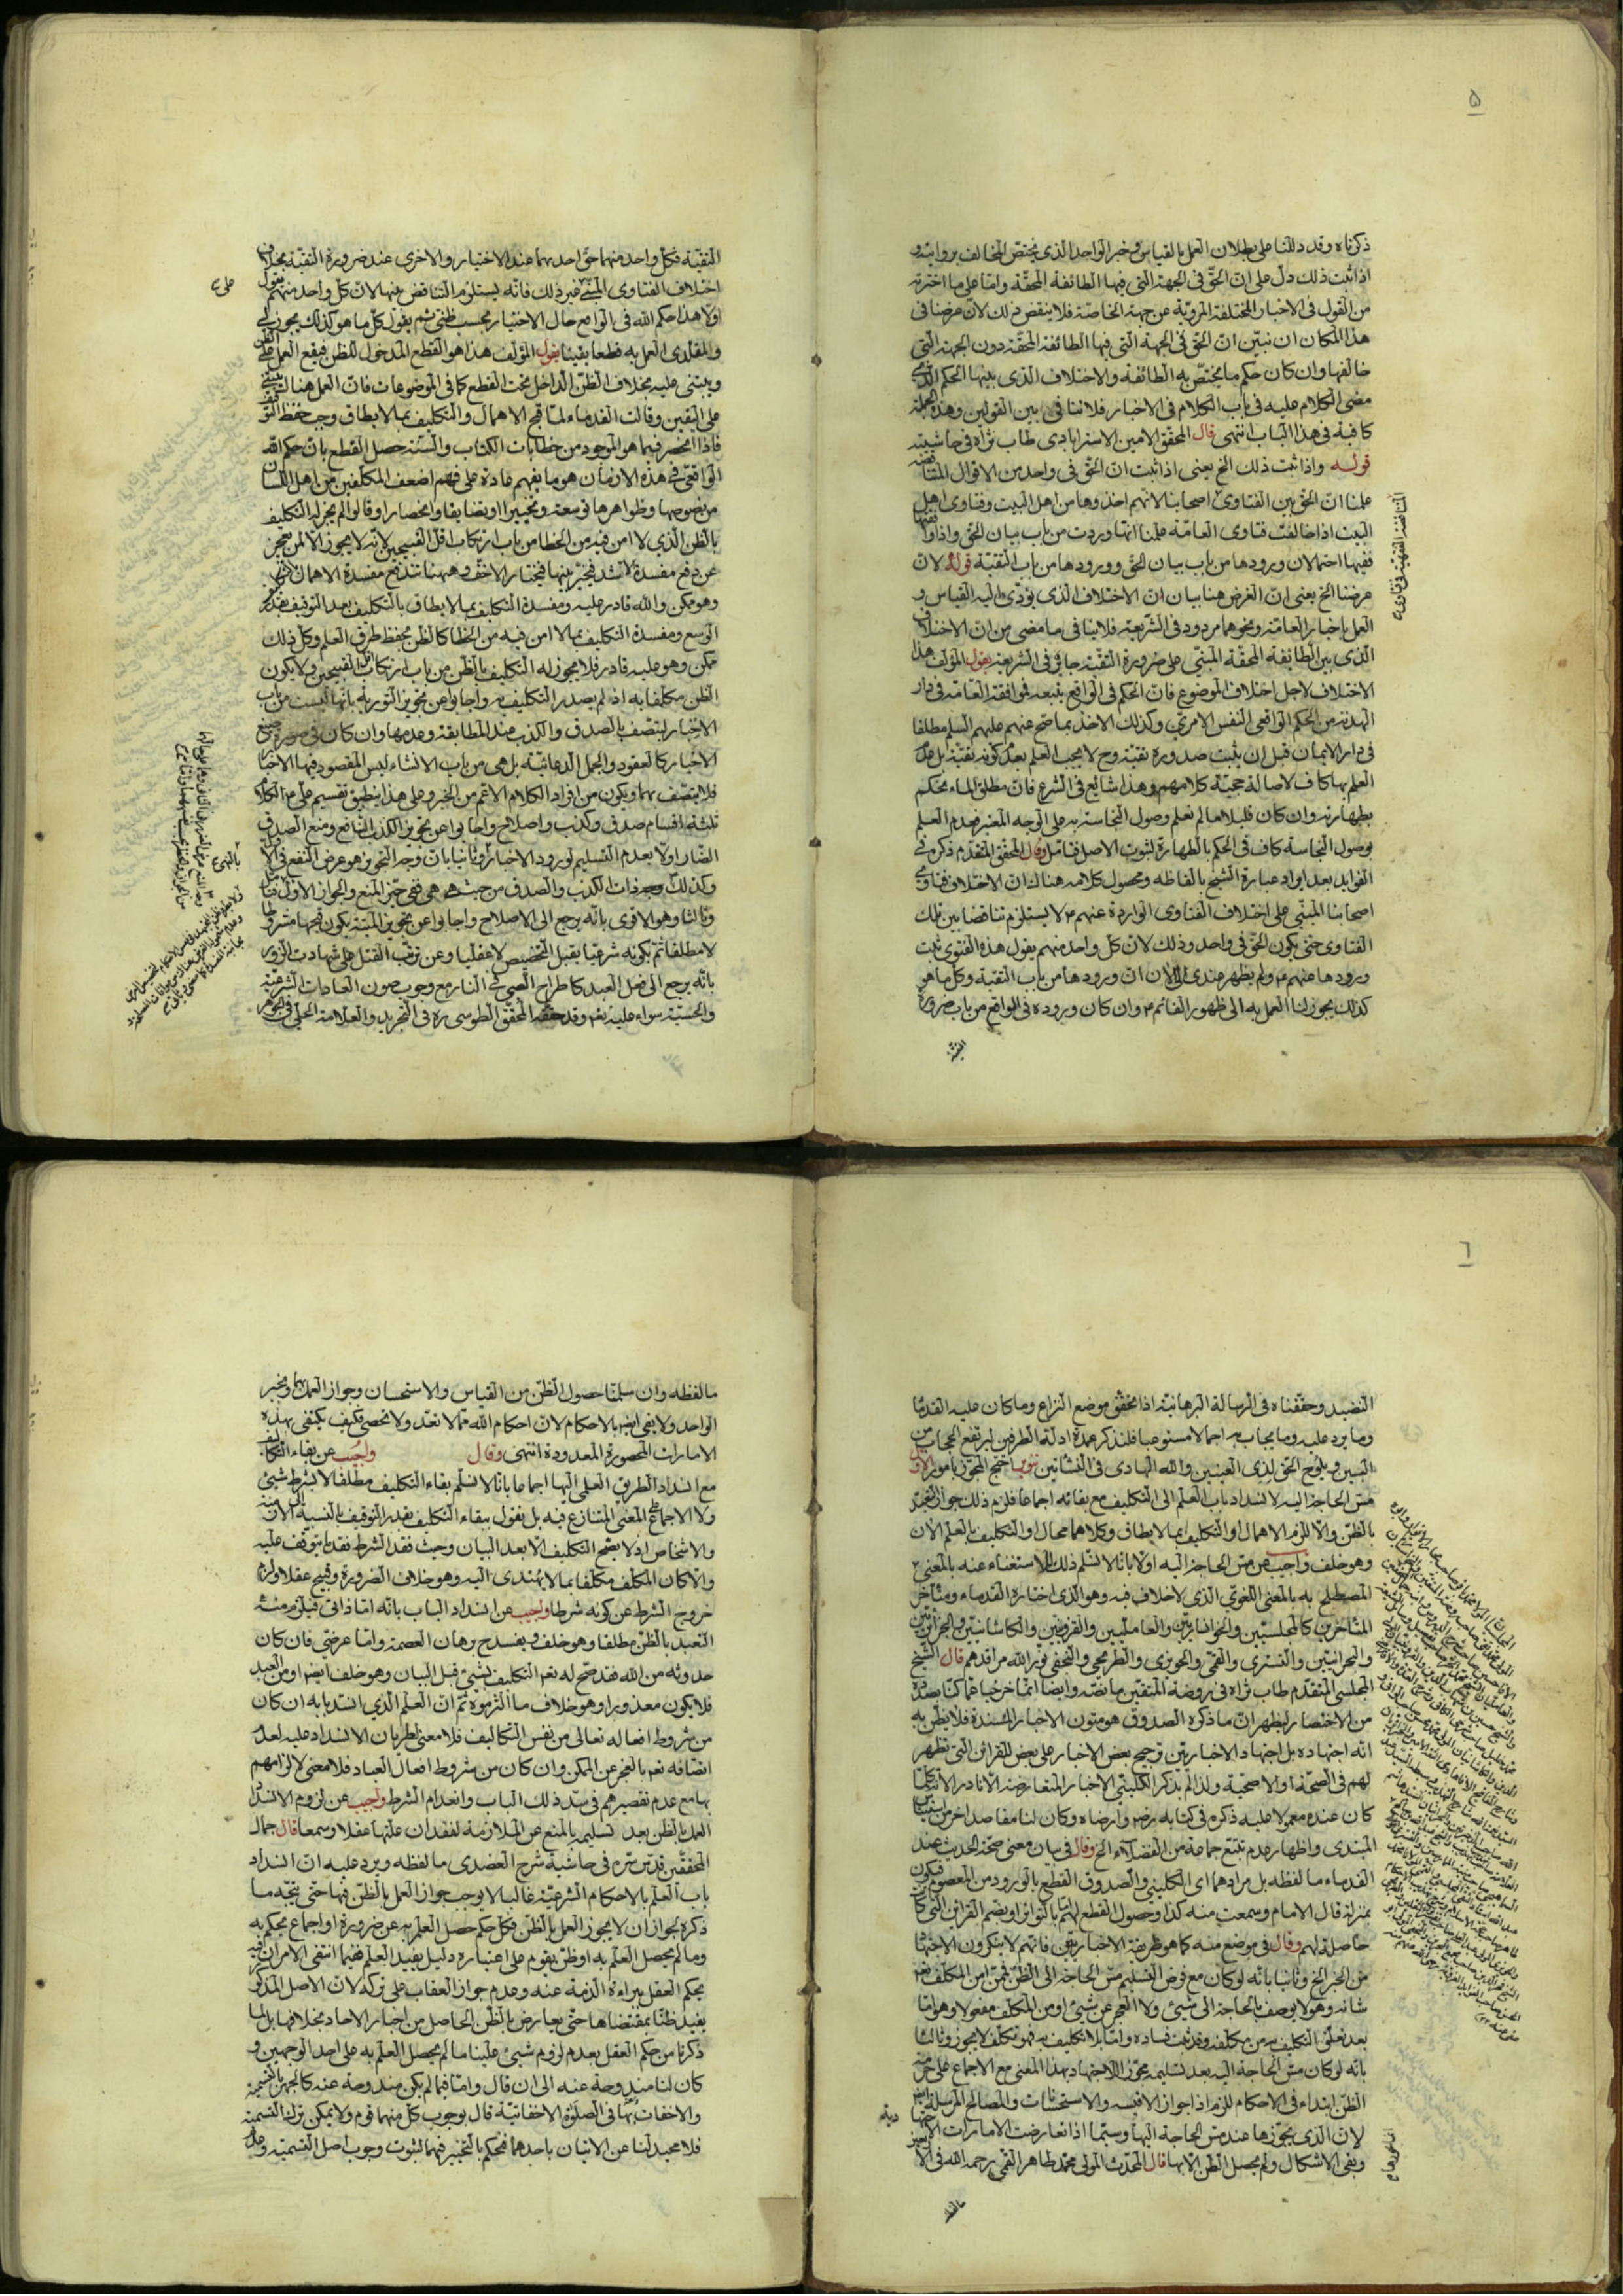 ۵
ذكرناه وقد دللنا على بطلان العمل بالقياس وخبر الواحد الذى يختص المخالف بروايته و
اذا ثبت ذلك دل على انّ الحقّ فى الجهة التى فيها الطائفة المحقّة وامّا على ما اخترته
من القول فى الاخبار المختلفة المرويّة عن جهة الخاصّة فلا ينقض ذلك لانّ غرضنا فى
هذا المكان ان نبيّن انّ الحقّ فى الجهة التى فيها الطائفة المحقّة دون الجهة التى
خالفها وان كان حكم ما يختصّ به الطائفة والاختلاف الذى بينها الحكم الذى
مضى الكلام عليه فى باب الكلام فى الاخبار فلا تنافى بين القولين وهذه الجملة
كافية فى هذا الباب انتهى قال المحقّق الامين الاسترابادى طاب ثراه فى حاشيته
قوله واذا ثبت ذلك الخ يعنى اذا ثبت انّ الحقّ فى واحد من الاقوال المتناقضة
علمنا انّ الحقّ بين الفتاوى اصحابنا لانّهم اخذوها من اهل البيت وفتاوى اهل
البيت اذا خالفت فتاوى العامّة علمنا انّها وردت من باب بيان الحقّ واذا وافقتها
ففيها احتمالان ورودها من باب بيان الحقّ وورودها من باب التقيّة قوله لانّ
غرضنا الخ يعنى انّ الغرض هنا بيان انّ الاختلاف الذى يؤدّى اليه القياس و
العمل باخبار العامّة ونحوها مردود فى الشريعة فلا ينافى ما مضى من انّ الاختلاف
الذى بين الطايفة المحقّة المبتنى على ضرورة التقيّة جايز فى الشريعة يقول المؤلف هذا
الاختلاف لاجل اختلاف الموضوع فانّ الحكم فى الواقع يتبعه فموافقة العامّة فى دار
الهدنة من الحكم الواقعى النفس الامرىّ وكذلك الاخذ بما صحّ عنهم عليهم السلم مطلقا
فى دار الايمان قبل ان يثبت صدوره تقيّة وح لا يجب العلم بعدم كونه تقيّة بل عدم
العلم بها كاف لاصالة حجيّة كلامهم وهذا شايع فى الشرع فانّ مطلق الماء محكم
بطهارته وان كان قليلا ما لم نعلم وصول النجاسة به على الوجه المعتبر فعدم العلم
بوصول النجاسة كاف فى الحكم بالطهارة لثبوت الاصل فتامّل وقال المحقق المتقدّم ذكره فى
الفوايد بعد ايراد عبارة الشيخ بالفاظه ومحصول كلامه هناك انّ الاختلاف فتاوى
اصحابنا المبتنى على اختلاف الفتاوى الواردة عنهم ع لا يستلزم تناقضا بين تلك
الفتاوى حتى يكون الحقّ فى واحد وذلك لانّ كلّ واحد منهم يقول هذه الفتوى ثبت
ورودها عنهم ع ولم يظهر عندى الى الآن انّ ورودها من باب التقيّة وكلّ ما هو
كذلك يجوز لنا العمل به الى ظهور القائم ع وان كان وروده فى الواقع من باب ضرورة
التقيّة
التقيّة فكلّ واحد منهما حقّ احديهما عند الاختيار والاخرى عند ضرورة التقيّة بخلاف
اختلاف الفتاوى المبتنى على غير ذلك فانّه يستلزم التناقض بينها لانّ كلّ واحد منهم يقول
اوّلا هذا حكم الله فى الواقع حال الاختيار بحسب ظنّى ثم يقول كلّ ما هو كذلك يجوز لى
والمقلّدى العمل به قطعا يقينا يقول المؤلف هذا هو القطع المدخول للظن فيقع العمل على الظن
ويبتنى عليه بخلاف الظنّ الداخل تحت القطع كما فى الموضوعات فانّ العمل هنالك يبتنى
على اليقين وقالت القدماء لمّا قبح الاهمال والتكليف بما لا يطاق وجب حفظ
فاذا انحصر فيما هو الموجود من خطابات الكتاب والسنّة حصل القطع بانّ حكم الله
الواقعىّ فى هذه الازمان هو ما يفهم عادة على فهم اضعف المكلّفين من اهل اللّسان
من نصوصها وظواهرها توسعة وتخييرا او تضايقا وانحصارا وقالوا لم يجز له التكليف
بالظن الذى لا امن فيه من الخطا من باب ارتكاب اقلّ القبيحين لانّه لا يجوز الّا لمن يعجز
عن دفع مفسدة الاشد فتحيّر بينها فيختار الاخفّ وههنا تندفع مفسدة الاهمال
وهو ممكن والله قادر عليه ومفسدة التكليف بما لا يطاق بالتكليف بعد التوقيف بقدر
الوسع ومفسدة التكليف بما لا امن فيه من الخطا كالظن بحفظ طرق العلم وكلّ ذلك
ممكن وهو عليه قادر فلا يجوز له التكليف بالظنّ من باب ارتكاب اقلّ القبيحين ولا يكون
الظن مكلّفا به اذ لم يصدر التكليف به واجابوا عن تجويز التورية بانّها ليست من باب
الاخبار ليتصف بالصدق والكذب عند المطابقة وعدمها وان كان فى صورة صيغ
الاخبار كالعقود والجمل الدعائيّة بل هى من باب الانشاء ليس المقصود فيها الاخبار
فلا يتصف بهما ويكون من افراد الكلام الاعمّ من الخبر وعلى هذا ينطبق تقسيم
ثلثة اقسام صدق وكذب واصلاح واجابوا عن تجويز الكذب النافع ومنع الصدق
الضار اوّلا بعدم التسليم لورود الاخبار وثانيا بانّ وجه التجويز هو عرض النفع فى
وكذلك وجد ذات الكذب والصدق من حيث هى هى ففى حيّز المنع والجواز الاوّل
وثالثا وهو الاقوى بانّه يرجع الى الاصلاح واجابوا عن تجويز الميتة بكون قبحها مشروطا
لا مطلقا ثم بكونه شرعيّا يقبل التخصيص لا عقليا وعن ترتّب القتل على شهادت الزور
بانّه يرجع الى فعل العبد كاطراح الصبىّ فى النار مع وجوب صون العادات الشرعيّة
والحسيّة سواء عليه نعم وقد حقّقه المحقّق الطوسى ره فى التجريد والعلامة الحلّى فى
٦
النضيد وحقّقناه فى الرسالة البرهانيّة اذا تحقّق موضع النزاع وما كان عليه القدماء
وما يرد عليه وما يجاب به اجمالا مستوعبا فلنذكر عمدة ادلّة الطرفين ليرتفع الحجاب من
البين ويلوح الحقّ لذى العينين والله الهادى فى النشاتين احتجّ المجوّز بامور الاوّل
مسّ الحاجة اليه لانسداد باب العلم الى التكليف مع بقائه اجماعا فلزم ذلك جواز التعبّد
بالظنّ والّا للزم الاهمال او التكليف بما لا يطاق وكلاهما محال او التكليف بالعلم الآن
وهو خلف واجيب عن مسّ الحاجة اليه اوّلا بانّا لا نسلّم ذلك للاستغناء عنه بالمعنى
المصطلح به بالمعنى اللغوى الذى لا خلاف فيه وهو الذى اختاره القدماء ومتأخر
المتأخرين كالمجلسيّين والخوانساريّين والعامليين والقزوينيين والكاشانيّين
والبحرانيّين والتسترى والقمّى والحويزى والطريحى والنجفى نوّر الله مراقدهم قال الشيخ
المجلسى المتقدّم طاب ثراه فى روضة المتّقين ما نصّه وايضا انّما خرجنا عمّا كنّا بصدده
من الاختصار ليظهر انّ ما ذكره الصدوق هو متون الاخبار المسندة فلا يظنّ به
انّه اجتهاده بل اجتهاد الاخباريّين ترجيح بعض الاخبار على بعض للقرائن التى تظهر
لهم فى الصحّة او الاصحيّة ولذا لم يذكر الكلينى الاخبار المتعارضة الّا نادرا
كان عنده معمولا عليه ذكره فى كتابه رضى الله وارضاه وكان لنا مقاصد اخر من
المبتدى واظهار عدم تتبّع جماعة من الفضلاء الخ وقال فى بيان معنى صحّة الحديث عند
القدماء ما لفظه بل مرادهما اى الكلينى والصدوق القطع بالورود من المعصوم فيكون
بمنزلة قال الامام وسمعت منه كذا وحصول القطع لهم امّا بالتواتر او بضم القراين التى كانت
حاصلة لهم وقال فى موضع منه كما هو طريقة الاخباريّين فانّهم لا ينكرون الاجتهاد
من الخبر الخ وثانيا بانّه لو كان مع فرض التسليم مسّ الحاجة الى الظنّ فمن
شانه وهو لا يوصف بالحاجة الى شىء ولا العجز عن شىء او من المكلّف مفعولا وهو امّا
بعد تعلّق التكليف به من مكلّفه وقد ثبت فساده وامّا بلا تكليف به فهو تكلّف لا يجوز وثالثا
بانّه لو كان مسّ الحاجة اليه بعد تسليمه مجوّزا للاجتهاد بهذا المعنى مع الاجماع على حرمة
الظنّ ابتداء فى الاحكام للزم اذا جواز الاقيسة والاستحسانات والمصالح المرسلة
لانّ الذى يجوّزها عند مسّ الحاجة اليها وسيّما اذا تعارضت الامارات
وبقى الاشكال ولم يحصل الظنّ الّا بها قال المحدّث المولى محمّد طاهر القمّى رحمه الله
ما لفظه
ما لفظه وان سلّمنا حصول الظنّ من القياس والاستحسان وجواز العمل بهما وبخبر
الواحد ولا يفى ايضا بالاحكام لانّ احكام الله ممّا لا تعدّ ولا تحصى فكيف يكتفى بهذه
الامارات المحصورة المعدودة انتهى وقال واجيب عن بقاء التكليف
مع انسداد الطريق العلمى اليها اجماعا بانّا لا نسلّم بقاء التكليف مطلقا لا بشرط شىء
ولا الاجماع على المعنى المتنازع فيه بل نقول ببقاء التكليف بقدر التوقيف بالنسبة الى
والاشخاص اذ لا يصحّ التكليف الّا بعد البيان وحيث فقد الشرط فقد ما يتوقّف عليه
والّا كان المكلّف مكلّفا بما لا يهتدى اليه وهو خلاف الضرورة وقبيح عقلا ولزم
خروج الشرط عن كونه شرطا واجيب عن انسداد الباب بانّه امّا ذاتى فيلزم منه
التعبد بالظنّ مطلقا وهو خلف ويفسد برهان العصمة وامّا عرضى فان كان
حدوثه من الله فقد صحّ له نعم التكليف بشىء قبل البيان وهو خلف ايضا او من العبد
فلا يكون معذورا وهو خلاف ما الثرموه ثمّ انّ العلم الذى انسدّ بابه ان كان
من شروط افعاله تعالى من نفس التكاليف فلا معنى لطريان الانسداد عليه لعدم
اتصافه نعم بالعجز عن الممكن وان كان من شروط افعال العباد فلا معنى لالزامهم
بها مع عدم تقصيرهم فى سدّ ذلك الباب وانعدام الشرط واجيب عن لزوم الانسداد
العمل بالظنّ بعد تسليمه بالمنع عن الملازمة لفقدان علّتها عقلا وسمعا قال جمال
المحقّقين قدّس سرّه فى حاشية شرح العضدى ما لفظه ويرد عليه انّ انسداد
باب العلم بالاحكام الشرعيّة غالبا لا يوجب جواز العمل بالظنّ فيها حتى يتّجه ما
ذكره لجواز ان لا يجوز العمل بالظنّ فكلّ حكم حصل العلم به عن ضرورة او اجماع يحكم به
وما لم يحصل العلم به او ظنّ يقوم على اعتباره دليل يفيد العلم ففيما انتفى الامران فيه
يحكم العقل ببراءة الذمّة عنه وعدم جواز العقاب على تركه لا لانّ الاصل المذكور
يفيد ظنّا بمقتضاها حتّى يعارض بالظنّ الحاصل من اخبار الاحاد بخلافها بل لما
ذكرنا من حكم العقل بعدم لزوم شىء علينا ما لم يحصل العلم به على احد الوجهين و
كان لنا مندوحة عنه الى ان قال وامّا فيما لم يكن مندوحة عنه كالجهر بالتسمية
والاخفات بها فى الصلوة الاخفاتيّة قال بوجوب كلّ منهما قوم ولا يمكن ترك التسمية
فلا محيد لنا عن الاتيان باحدهما فيحكم بالتخيير فيهما لثبوت وجوب اصل التسمية